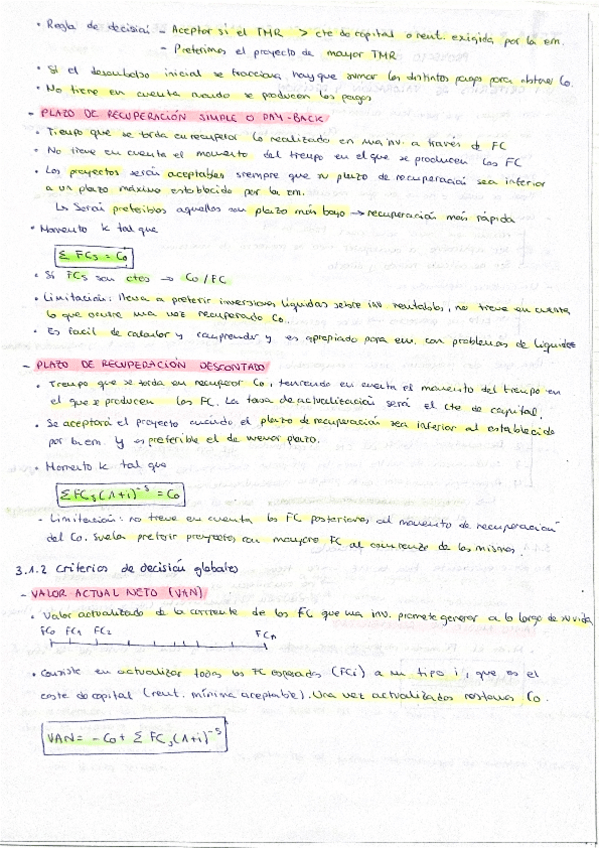 • Regla de decisión - Aceptar si el TMR > cte de capital o rent. exigida por la em.
- Preferimos el proyecto de mayor TMR
• Si el desembolso inicial se fracciona, hay que sumar los distintos pagos para obtener Co.
• No tiene en cuenta cuando se producen los pagos
- PLAZO DE RECUPERACIÓN SIMPLE O PAY-BACK
• Tiempo que se tarda en recuperar lo realizado en una inv. a través d FC
• No tiene en cuenta el momento del tiempo en el que se producen los FC
• Los proyectos serán aceptables siempre que su plazo de recuperación sea inferior
a un plazo máximo establecido por la em.
↳ Serán preferibles aquellos con plazo más bajo → recuperación más rápida
• Momento k tal que
Σ FCs = Co
• Si FCs son ctes → Co/FC
• Limitación: lleva a preferir inversiones líquidas sobre inv. rentables, no tiene en cuenta
lo que ocurre una vez recuperado Co.
• Es fácil de calcular y comprender y es apropiado para em. con problemas de liquidez
- PLAZO DE RECUPERACIÓN DESCONTADO
• Tiempo que se tarda en recuperar Co, teniendo en cuenta el momento del tiempo en
el que se producen los FC. La tasa de actualización será el cte de capital.
• Se aceptará el proyecto cuando el plazo de recuperación sea inferior al establecido
por la em. y es preferible el de menor plazo.
• Momento k tal que
ΣFCs(1+i)^-s = Co
• Limitación: no tiene en cuenta los FC posteriores al momento de recuperación
del Co. Suelen preferir proyectos con mayores FC al comienzo de los mismos.
3.1.2 Criterios de decisión globales
- VALOR ACTUAL NETO (VAN)
• Valor actualizado de la corriente de los FC que una inv. promete generar a lo largo de su vida
FCo FC1 FC2 FCn
• Consiste en actualizar todos los FC esperados (FCi) a un tipo i, que es el
coste de capital (rent. mínima aceptable). Una vez actualizados restamos Co.
VAN = -Co + Σ FCs(1+i)^-s